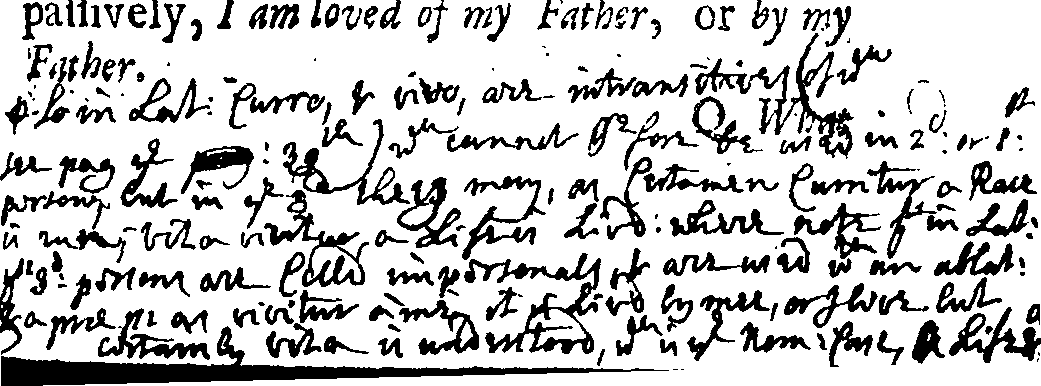 passively, I am loved of my Father, or by my
Father.
& so in Lat: Curro, & vivo, are intransitives (of wch
see pag ye : 39th) wch cannot be used in 2d: or 1st:
persons, but in ye 3d they may, as Certamen Curritur a Race
is run; vita vivitur, a Life is Lived: where note yt in Lat:
ys 3d: persons are Called impersonals, & are used wth an ablat:
& a prep as vivitur a me, it is Lived by me, or I live but
certainly vita is understood, wch is ye Nom: Case, Life